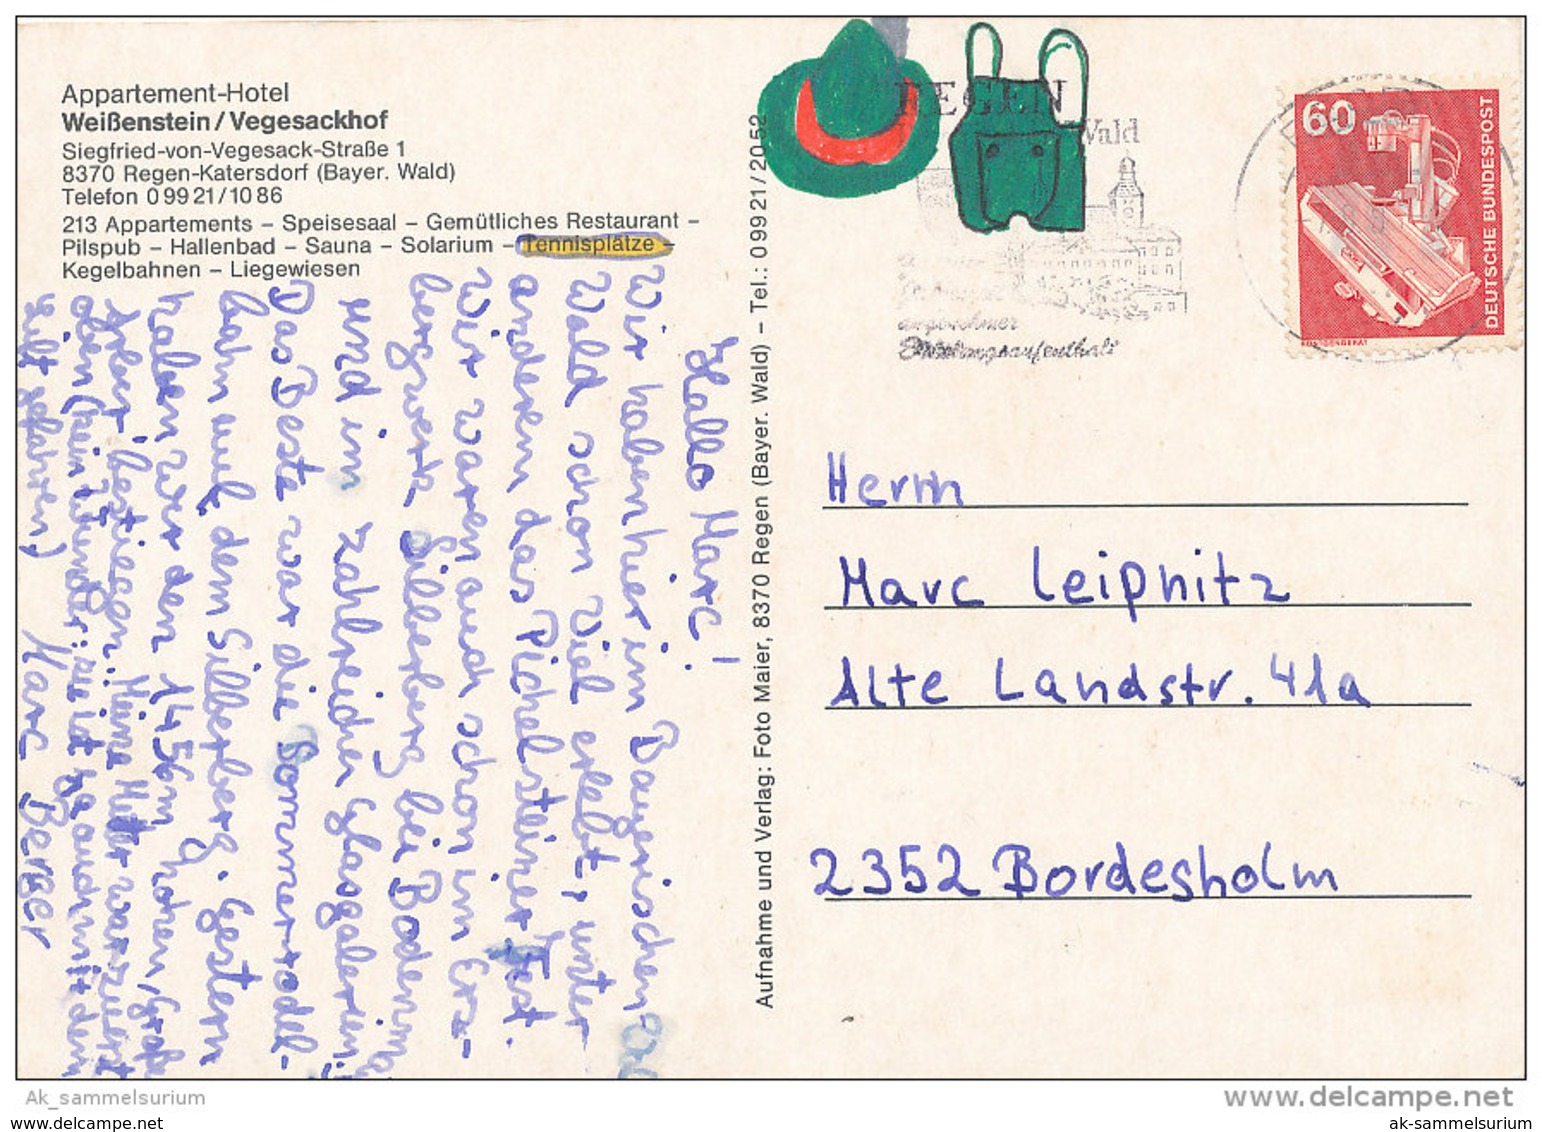 Appartement-Hotel
Weißenstein/Vegesackhof
Siegfried-von-Vegesack-Straße 1
8370 Regen-Katersdorf (Bayer. Wald)
Telefon 0 99 21/10 86
213 Appartements – Speisesaal – Gemütliches Restaurant –
Pilspub – Hallenbad – Sauna – Solarium – Tennisplätze –
Kegelbahnen – Liegewiesen
Hallo Marc!
Wir haben hier im Bayerischen
Wald schon viel erlebt, unter
anderem das Pichelsteiner Fest.
Wir waren auch schon im Erz-
bergwerk Silberberg bei Bodenmais
und in zahlreichen Glasgalerien.
Das Beste war die Sommerrodel-
bahn auf dem Silberberg. Gestern
haben wir den 1456m hohen Großen
Arber bestiegen. Meine Mutter war zuerst
oben (kein Wunder: sie ist ja auch mit dem
Lift gefahren)
Marc Berger
Aufnahme und Verlag: Foto Maier, 8370 Regen (Bayer. Wald) – Tel.: 0 99 21/20 52
REGEN
Wald
angenehmer
Erholungsaufenthalt
60
DEUTSCHE BUNDESPOST
RÖNTGENGERÄT
Herrn
Marc Leipnitz
Alte Landstr. 41a
2352 Bordesholm
Ak_sammelsurium
delcampe.net
www.delcampe.net
ak-sammelsurium